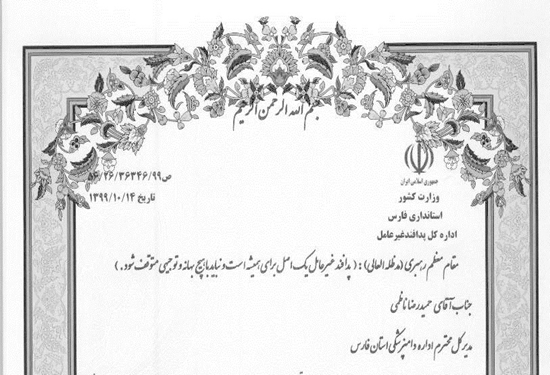 بسم الله الرحمن الرحیم
جمهوری اسلامی ایران
وزارت کشور
استانداری فارس
اداره کل پدافندغیرعامل
ص۵۶/۲۶/۳۶۳۴۶/۹۹
تاریخ ۱۳۹۹/۱۰/۱۴
مقام معظم رهبری (مدظله العالی) : ( پدافند غیرعامل یک اصل برای همیشه است و نباید با هیچ بهانه و توجیهی متوقف شود . )
جناب آقای حمیدرضا ناظمی
مدیر کل محترم اداره دامپزشکی استان فارس